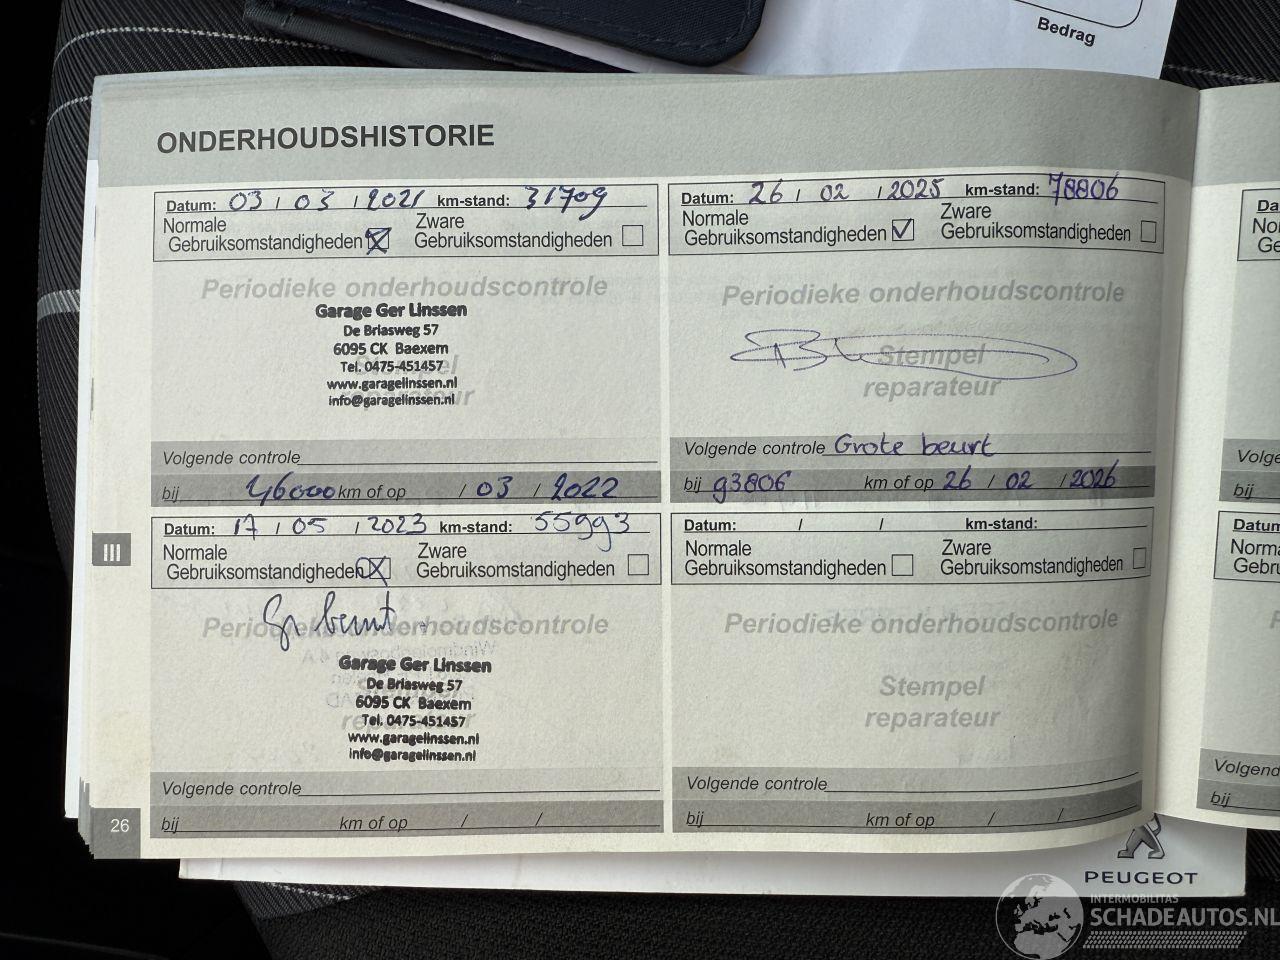 Bedrag
ONDERHOUDSHISTORIE
Datum: 03 / 03 / 2021 km-stand: 31709
Normale Gebruiksomstandigheden
Zware Gebruiksomstandigheden
Periodieke onderhoudscontrole
Garage Ger Linssen
De Briasweg 57
6095 CK Baexem
Tel. 0475-451457
www.garagelinssen.nl
info@garagelinssen.nl
Stempel
reparateur
Volgende controle
bij 46000 km of op / 03 / 2022
Datum: 26 / 02 / 2025 km-stand: 78806
Normale Gebruiksomstandigheden
Zware Gebruiksomstandigheden
Periodieke onderhoudscontrole
Stempel
reparateur
Volgende controle Grote beurt
bij 93806 km of op 26 / 02 / 2026
III
Datum: 17 / 05 / 2023 km-stand: 55993
Normale Gebruiksomstandigheden
Zware Gebruiksomstandigheden
Gr beurt
Periodieke onderhoudscontrole
Garage Ger Linssen
De Briasweg 57
6095 CK Baexem
Tel. 0475-451457
www.garagelinssen.nl
info@garagelinssen.nl
Volgende controle
bij km of op / /
Datum: / / km-stand:
Normale Gebruiksomstandigheden
Zware Gebruiksomstandigheden
Periodieke onderhoudscontrole
Stempel
reparateur
Volgende controle
bij km of op / /
26
bij
bij
PEUGEOT
INTERMOBILITAS
SCHADEAUTOS.NL